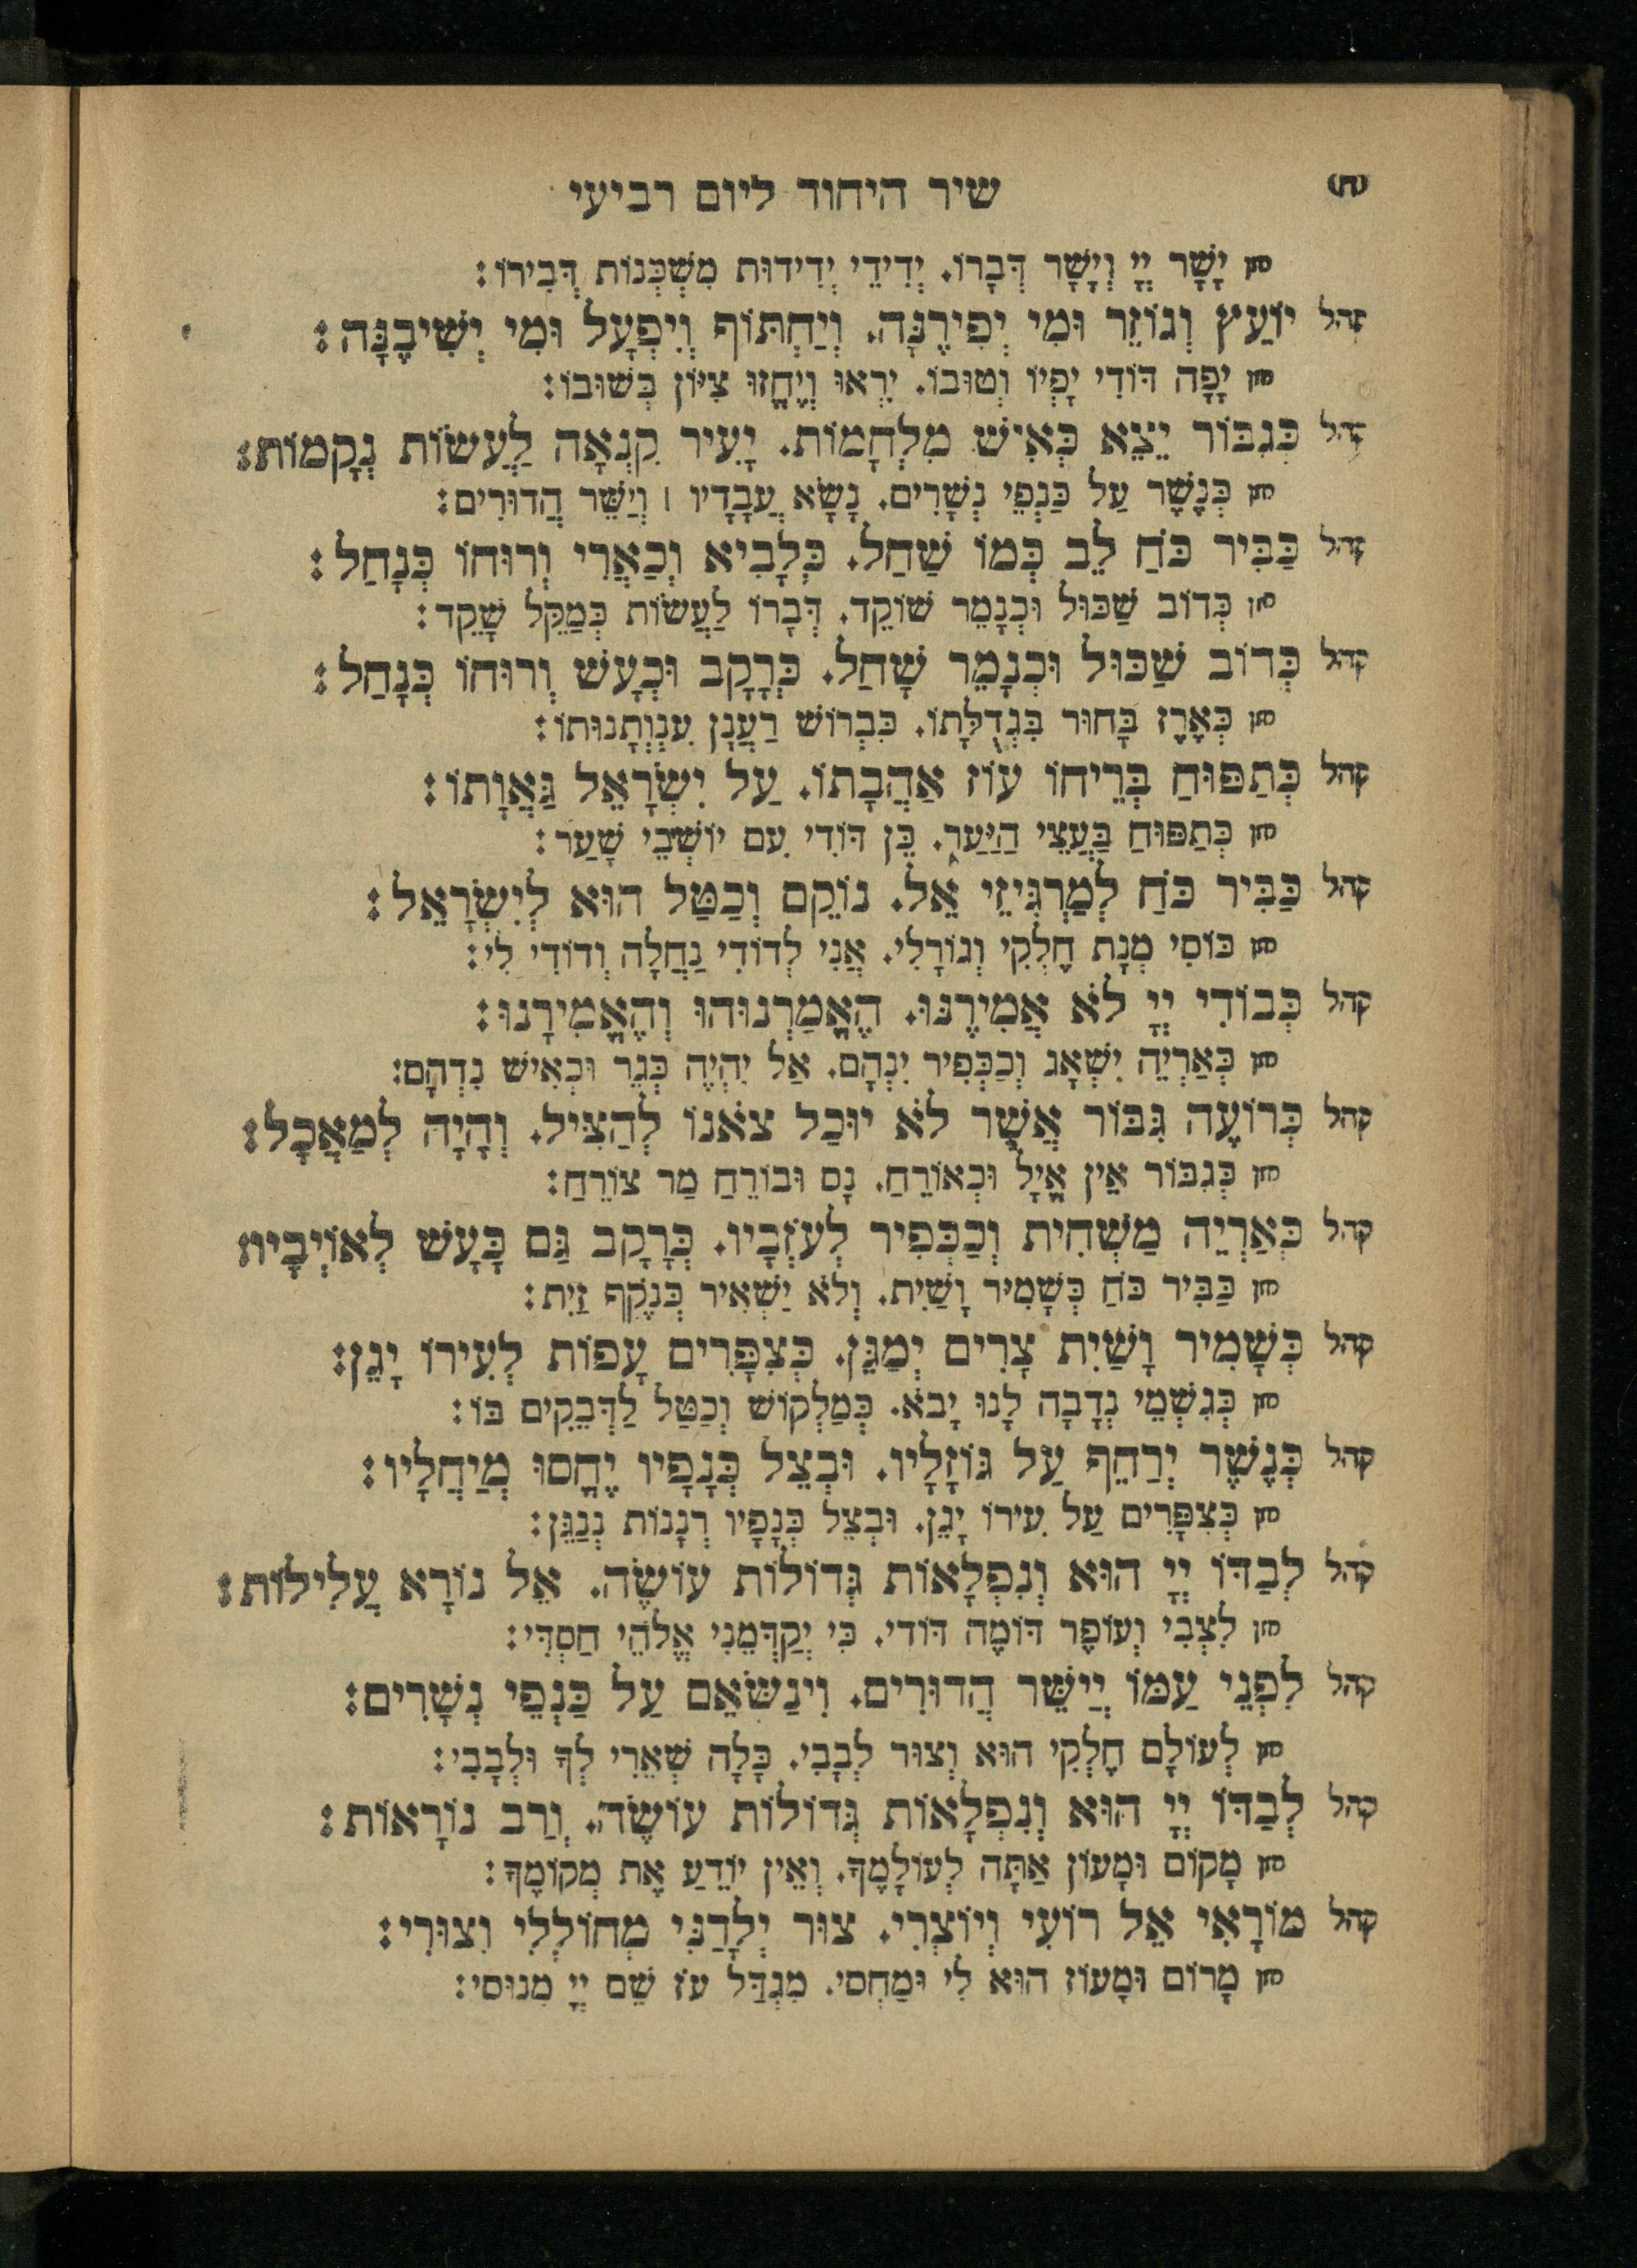 שיר היחוד ליום רביעי
חזן יָשָׁר יְיָ וְיָשָׁר דְּבָרוֹ. יְדִידֵי יְדִידוּת מִשְׁכְּנוֹת דְּבִירוֹ:
קהל יוֹעֵץ וְגוֹזֵר וּמִי יְפִירֶנָּה. וְיַחְתּוֹף וְיִפְעָל וּמִי יְשִׁיבֶנָּה:
חזן יָפֶה דּוֹדִי יָפְיוֹ וְטוּבוֹ. יִרְאוּ וְיֶחֱזוּ צִיּוֹן בְּשׁוּבוֹ:
קהל כְּגִבּוֹר יֵצֵא כְּאִישׁ מִלְחָמוֹת. יָעִיר קִנְאָה לַעֲשׂוֹת נְקָמוֹת:
חזן כְּנֶשֶׁר עַל כַּנְפֵי נְשָׁרִים. נָשָׂא עֲבָדָיו ׀ וְיַשֵּׁר הֲדוּרִים:
קהל כַּבִּיר כֹּחַ לֵב כְּמוֹ שַׁחַל. כְּלָבִיא וְכַאֲרִי וְרוּחוֹ כְּנָחַל:
חזן כְּדוֹב שַׁכּוּל וּכְנָמֵר שׁוֹקֵד. דְּבָרוֹ לַעֲשׂוֹת כְּמַקֵּל שָׁקֵד:
קהל כְּדוֹב שַׁכּוּל וּכְנָמֵר שָׁחַל. כְּרָקָב וּכְעָשׁ וְרוּחוֹ כְּנָחַל:
חזן כְּאֶרֶז בָּחוּר בִּגְדֻלָּתוֹ. כִּבְרוֹשׁ רַעֲנָן עִנְוְתָנוּתוֹ:
קהל כְּתַפּוּחַ בְּרֵיחוֹ עוֹז אַהֲבָתוֹ. עַל יִשְׂרָאֵל גַּאֲוָתוֹ:
חזן כְּתַפּוּחַ בַּעֲצֵי הַיַּעַר. כֵּן דּוֹדִי עִם יוֹשְׁבֵי שָׁעַר:
קהל כַּבִּיר כֹּחַ לְמַרְגִּיזֵי אֵל. נוֹקֵם וְכַטַּל הוּא לְיִשְׂרָאֵל:
חזן כּוֹסִי מְנָת חֶלְקִי וְגוֹרָלִי. אֲנִי לְדוֹדִי נַחֲלָה וְדוֹדִי לִי:
קהל כְּבוֹדִי יְיָ לֹא אֲמִירֶנּוּ. הֶאֱמַרְנוּהוּ וְהֶאֱמִירָנוּ:
חזן כְּאַרְיֵה יִשְׁאָג וְכַכְּפִיר יִנְהָם. אַל יִהְיֶה כְּגֵר וּכְאִישׁ נִדְהָם:
קהל כְּרוֹעֶה גִּבּוֹר אֲשֶׁר לֹא יוּכַל צֹאנוֹ לְהַצִּיל. וְהָיָה לְמַאֲכָל:
חזן כְּגִבּוֹר אֵין אֱיָל וּכְאוֹרֵחַ. נָם וּבוֹרֵחַ מַר צוֹרֵחַ:
קהל כְּאַרְיֵה מַשְׁחִית וְכַכְּפִיר לְעֹזְבָיו. כְּרָקָב גַּם כָּעָשׁ לְאוֹיְבָיו:
חזן כַּבִּיר כֹּחַ כְּשָׁמִיר וָשַׁיִת. וְלֹא יַשְׁאִיר כְּנֹקֶף זַיִת:
קהל כְּשָׁמִיר וָשַׁיִת צָרִים יְמַגֵּן. כְּצִפֳּרִים עָפוֹת לְעִירוֹ יָגֵן:
חזן כְּגִשְׁמֵי נְדָבָה לָנוּ יָבֹא. כְּמַלְקוֹשׁ וְכַטַּל לַדְּבֵקִים בּוֹ:
קהל כְּנֶשֶׁר יְרַחֵף עַל גּוֹזָלָיו. וּבְצֵל כְּנָפָיו יֶחֱסוּ מְיַחֲלָיו:
חזן כְּצִפֳּרִים עַל עִירוֹ יָגֵן. וּבְצֵל כְּנָפָיו רְנָנוֹת נְנַגֵּן:
קהל לְבַדּוֹ יְיָ הוּא וְנִפְלָאוֹת גְּדוֹלוֹת עוֹשֶׂה. אֵל נוֹרָא עֲלִילוֹת:
חזן לִצְבִי וְעוֹפֶר דּוֹמֶה דּוֹדִי. כִּי יְקַדְּמֵנִי אֱלֹהֵי חַסְדִּי:
קהל לִפְנֵי עַמּוֹ יְיַשֵּׁר הֲדוּרִים. וִינַשְּׂאֵם עַל כַּנְפֵי נְשָׁרִים:
חזן לְעוֹלָם חֶלְקִי הוּא וְצוּר לְבָבִי. כָּלָה שְׁאֵרִי לְךָ וּלְבָבִי:
קהל לְבַדּוֹ יְיָ הוּא וְנִפְלָאוֹת גְּדוֹלוֹת עוֹשֶׂה. וְרַב נוֹרָאוֹת:
חזן מָקוֹם וּמָעוֹן אַתָּה לְעוֹלָמֶךָ. וְאֵין יוֹדֵעַ אֶת מְקוֹמֶךָ:
קהל מוֹרָאִי אֵל רוֹעִי וְיוֹצְרִי. צוּר יְלָדַנִי מְחוֹלְלִי וְצוּרִי:
חזן מָרוֹם וּמָעוֹז הוּא לִי וּמַחְסִי. מִגְדַּל עֹז שֵׁם יְיָ מְנוּסִי: